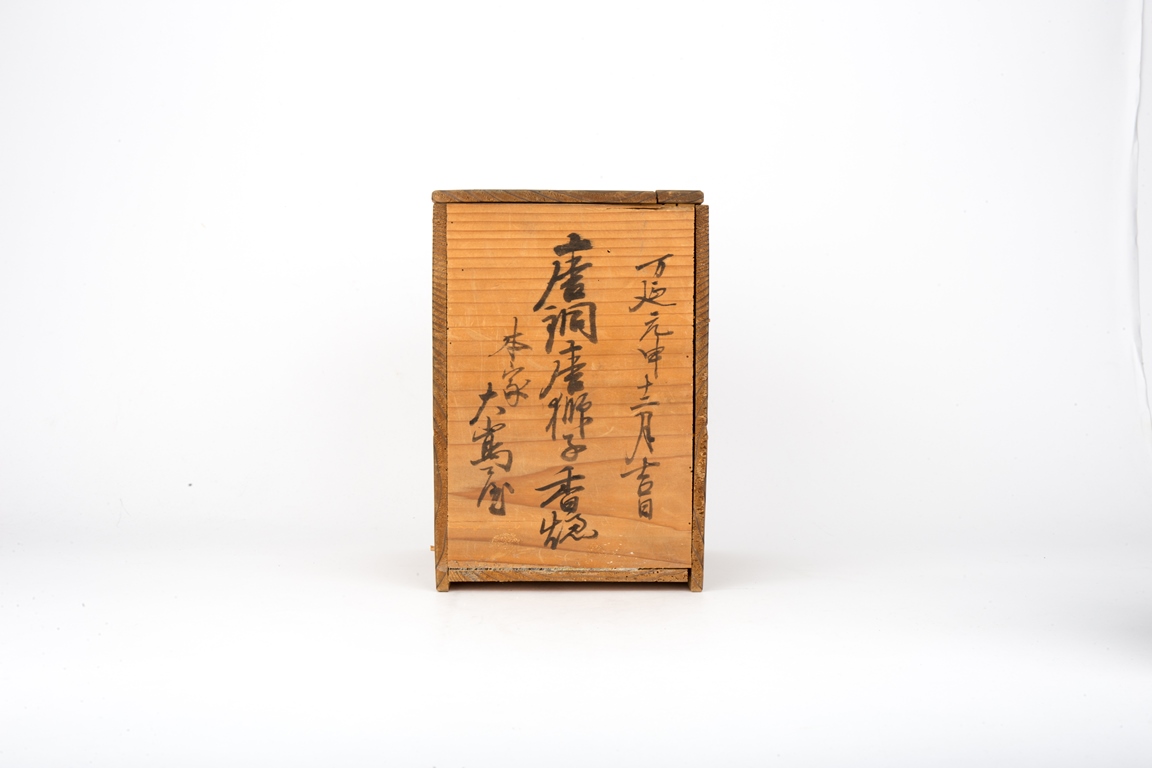 万延元申十二月吉日
唐銅唐獅子香炉
本家
大嶌屋